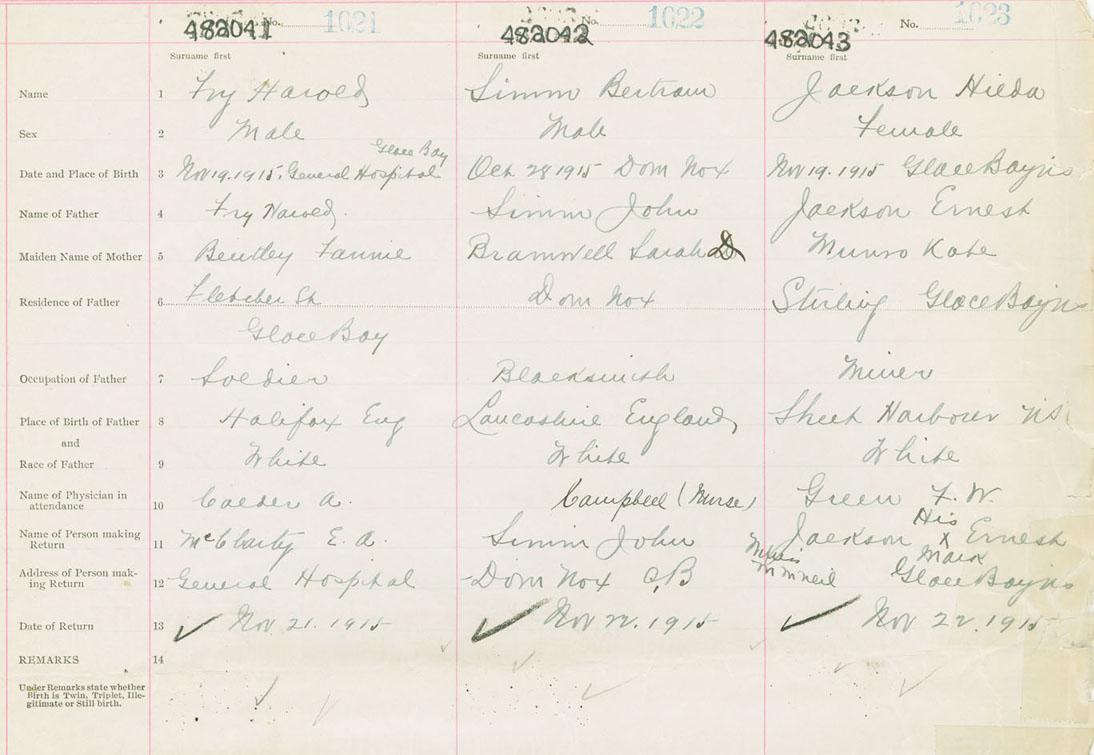 482041 No. 1021 482042 No. 1022 482043 No. 1023
Surname first Surname first Surname first
Name 1 Fry Harold Simm Bertram Jackson Hilda
Sex 2 Male Male Female
Glace Bay
Date and Place of Birth 3 Nov 19. 1915. General Hospital Oct 28 1915 Dom No x Nov 19. 1915 Glace Bay ns
Name of Father 4 Fry Harold. Simm John Jackson Ernest
Maiden Name of Mother 5 Bentley Fannie Bramwell Sarah Munro Kate
Residence of Father 6 Fletcher St Dom No x Stirling Glace Bay ns
Glace Bay
Occupation of Father 7 Soldier Blacksmith Miner
Place of Birth of Father 8 Halifax Eng Lancashire England Sheet Harbour NS
and
Race of Father 9 White White White
Name of Physician in
attendance 10 Calder A. Campbell (Nurse) Green F. W.
Name of Person making
Return 11 McClarty E. A. Simm John Jackson His x Mark Ernest
Address of Person mak-
ing Return 12 General Hospital Dom No x C,B McNeil Glace Bay ns
Date of Return 13 Nov. 21. 1915 Nov 22. 1915 Nov 22. 1915
REMARKS 14
Under Remarks state whether
Birth is Twin, Triplet, Ille-
gitimate or Still birth.